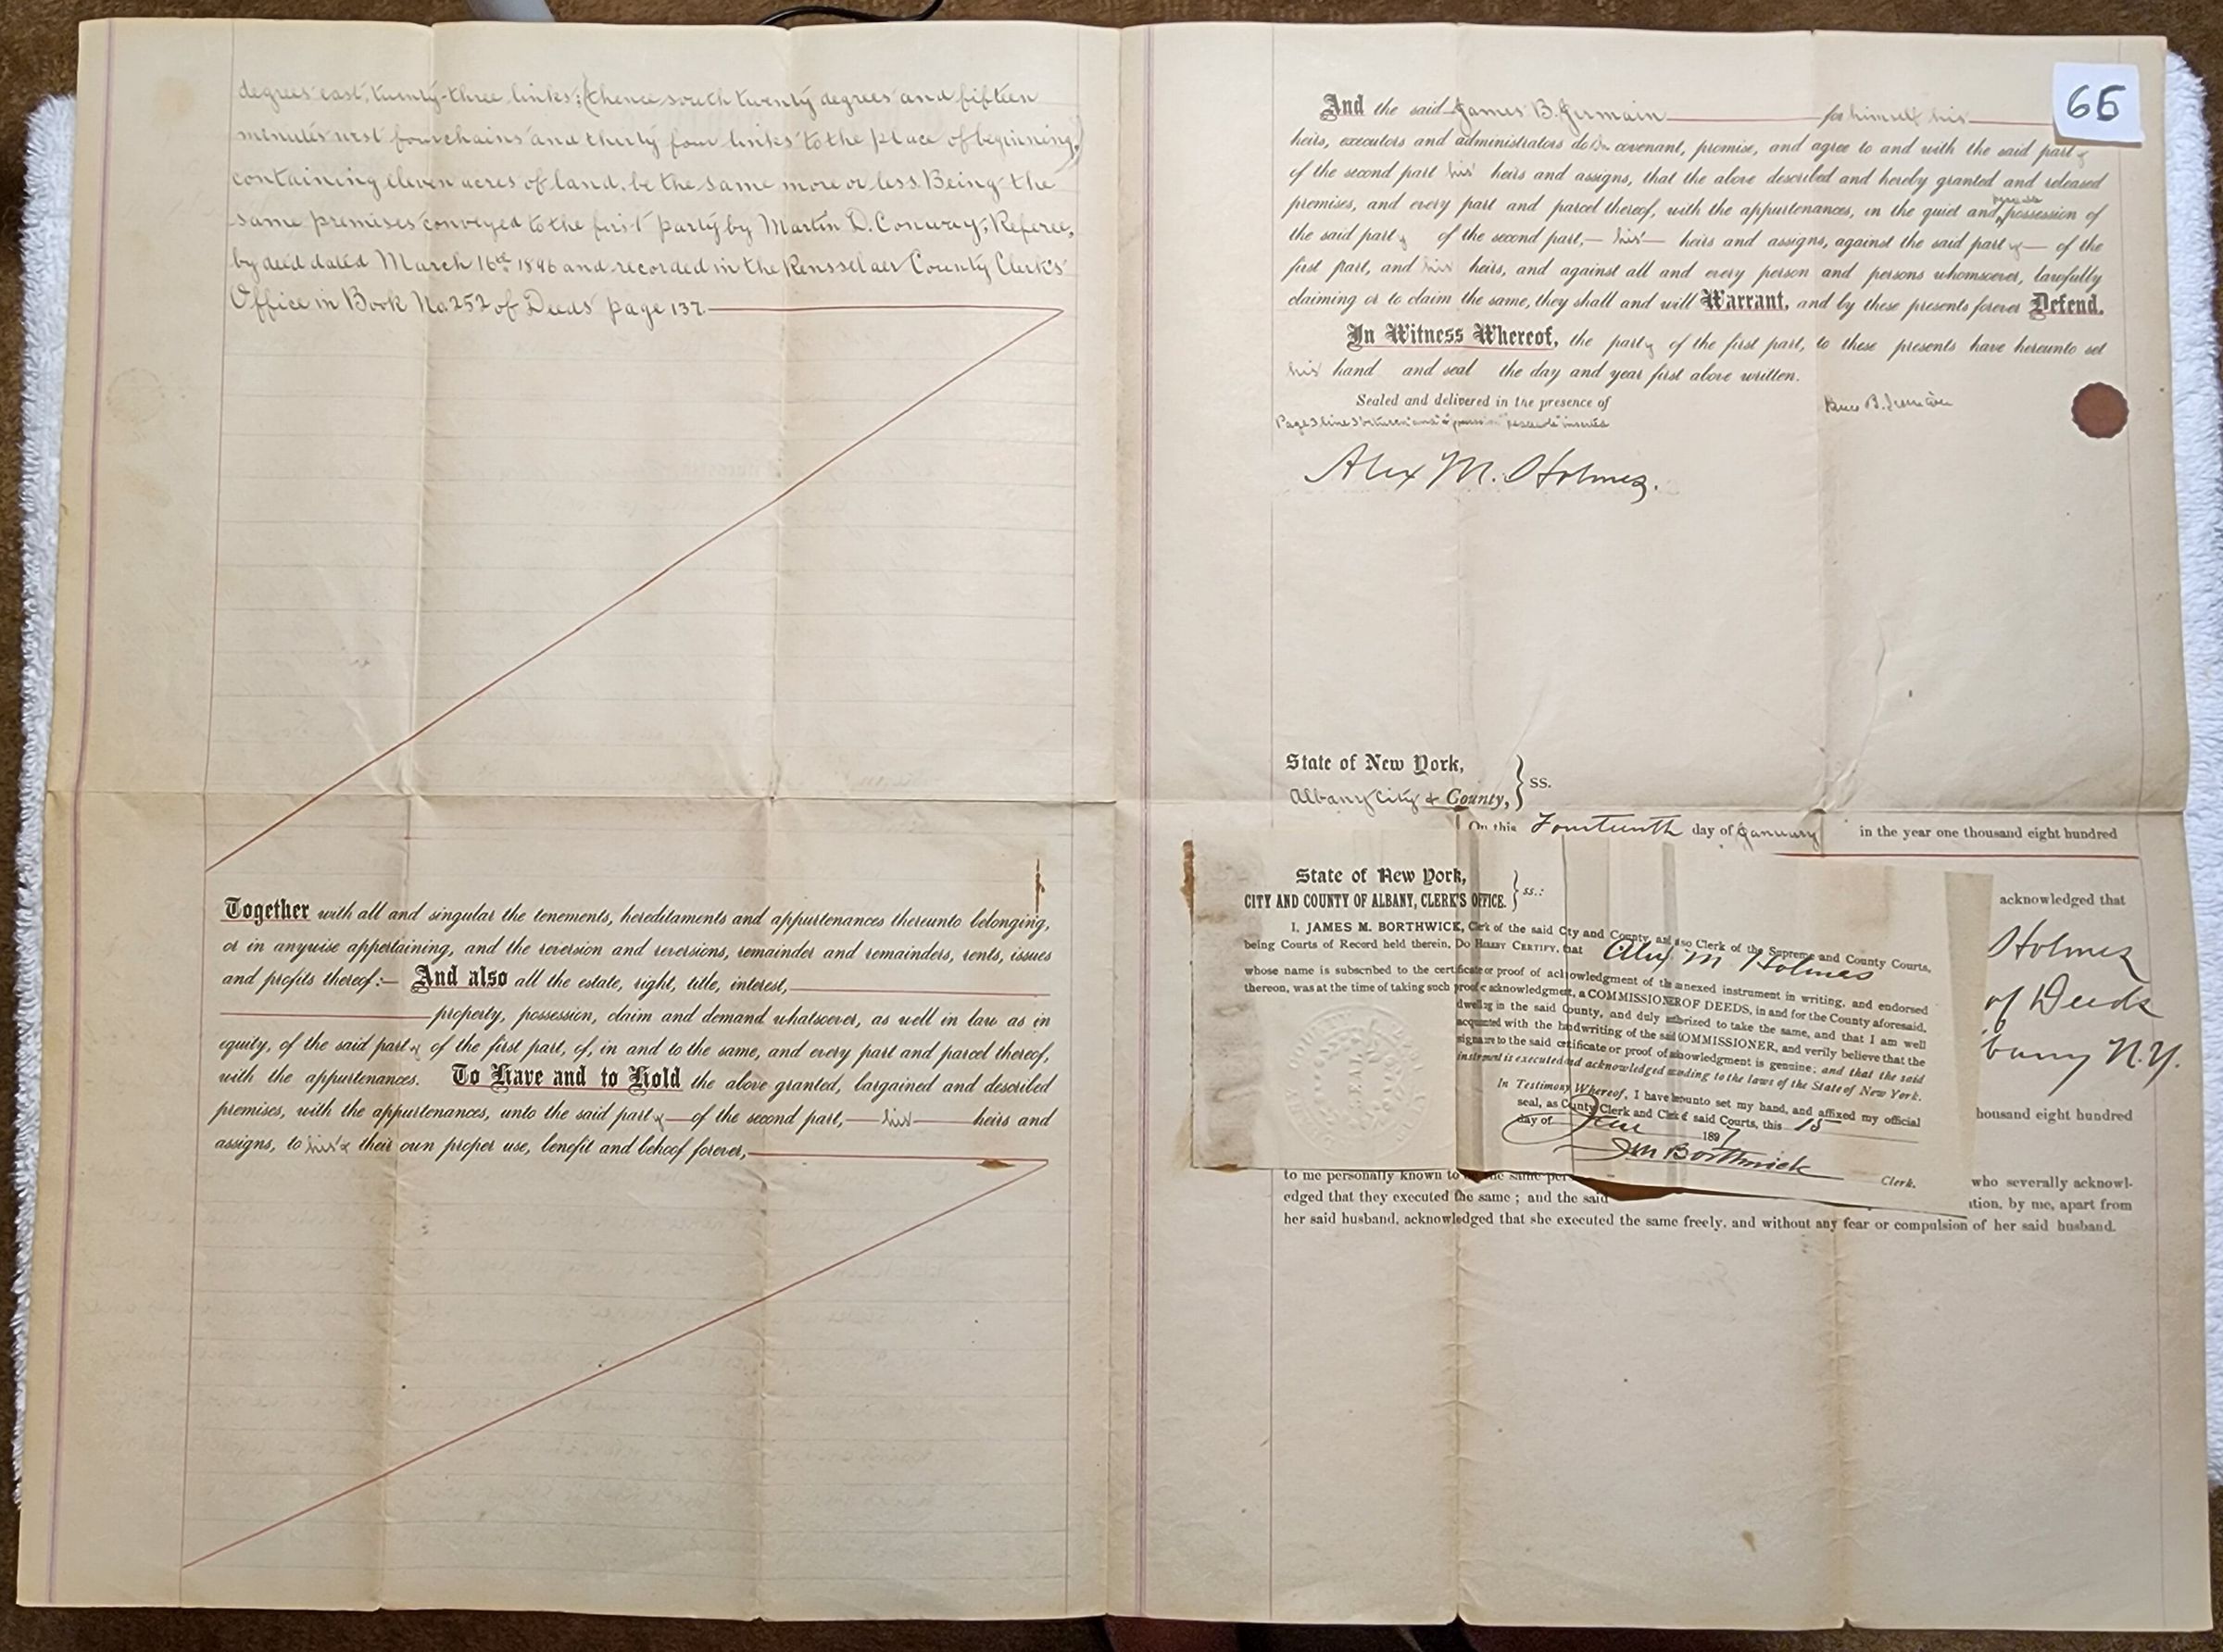 degrees east, twenty-three links; (thence south twenty degrees and fifteen
minutes west four chains and thirty four links to the place of beginning,)
containing eleven acres of land, be the same more or less. Being the
same premises conveyed to the first party by Martin D. Conway, Referee,
by deed dated March 16th 1896 and recorded in the Rensselaer County Clerk's
Office in Book No. 252 of Deeds page 137.
Together with all and singular the tenements, hereditaments and appurtenances thereunto belonging,
or in anywise appertaining, and the reversion and reversions, remainder and remainders, rents, issues
and profits thereof:— And also all the estate, right, title, interest,
property, possession, claim and demand whatsoever, as well in law as in
equity, of the said party of the first part, of, in and to the same, and every part and parcel thereof,
with the appurtenances. To Have and to Hold the above granted, bargained and described
premises, with the appurtenances, unto the said party of the second part,— his — heirs and
assigns, to his & their own proper use, benefit and behoof forever,
66
And the said James B. Jermain for himself his
heirs, executors and administrators do covenant, promise, and agree to and with the said party
of the second part his heirs and assigns, that the above described and hereby granted and released
premises, and every part and parcel thereof, with the appurtenances, in the quiet and peaceable possession of
the said party of the second part,— his — heirs and assigns, against the said party — of the
first part, and his heirs, and against all and every person and persons whomsoever, lawfully
claiming or to claim the same, they shall and will Warrant, and by these presents forever Defend.
In Witness Whereof, the party of the first part, to these presents have hereunto set
his hand and seal the day and year first above written.
Sealed and delivered in the presence of
James B. Jermain
Page 3 line 5 between "and" & "possession" "peaceable" inserted
Alex M. Holmes.
State of New York,
Albany City & County, } ss.
On this Fourteenth day of January in the year one thousand eight hundred
acknowledged that
Holmes
of Deeds
bany N.Y.
housand eight hundred
State of New York,
CITY AND COUNTY OF ALBANY, CLERK'S OFFICE. } ss.:
I, JAMES M. BORTHWICK, Clerk of the said City and County, and also Clerk of the Supreme and County Courts,
being Courts of Record held therein, DO HEREBY CERTIFY, that Alex M Holmes
whose name is subscribed to the certificate or proof of acknowledgment of the annexed instrument in writing, and endorsed
thereon, was at the time of taking such proof or acknowledgment, a COMMISSIONER OF DEEDS, in and for the County aforesaid,
dwelling in the said County, and duly authorized to take the same, and that I am well
acquainted with the handwriting of the said COMMISSIONER, and verily believe that the
signature to the said certificate or proof of acknowledgment is genuine; and that the said
instrument is executed and acknowledged according to the laws of the State of New York.
In Testimony Whereof, I have hereunto set my hand, and affixed my official
seal, as County Clerk and Clerk of said Courts, this 15
day of Jan 1897
J M Borthwick
Clerk.
SEAL
to me personally known to the same per who severally acknowl-
edged that they executed the same; and the said tion, by me, apart from
her said husband, acknowledged that she executed the same freely, and without any fear or compulsion of her said husband.